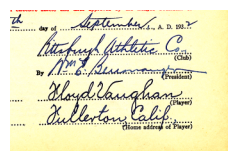 th day of September, A. D. 1932
Pittsburgh Athletic Co.
(Club)
By Wm. E. Benswanger
(President)
Floyd Vaughan
(Player)
Fullerton Calif.
(Home address of Player)